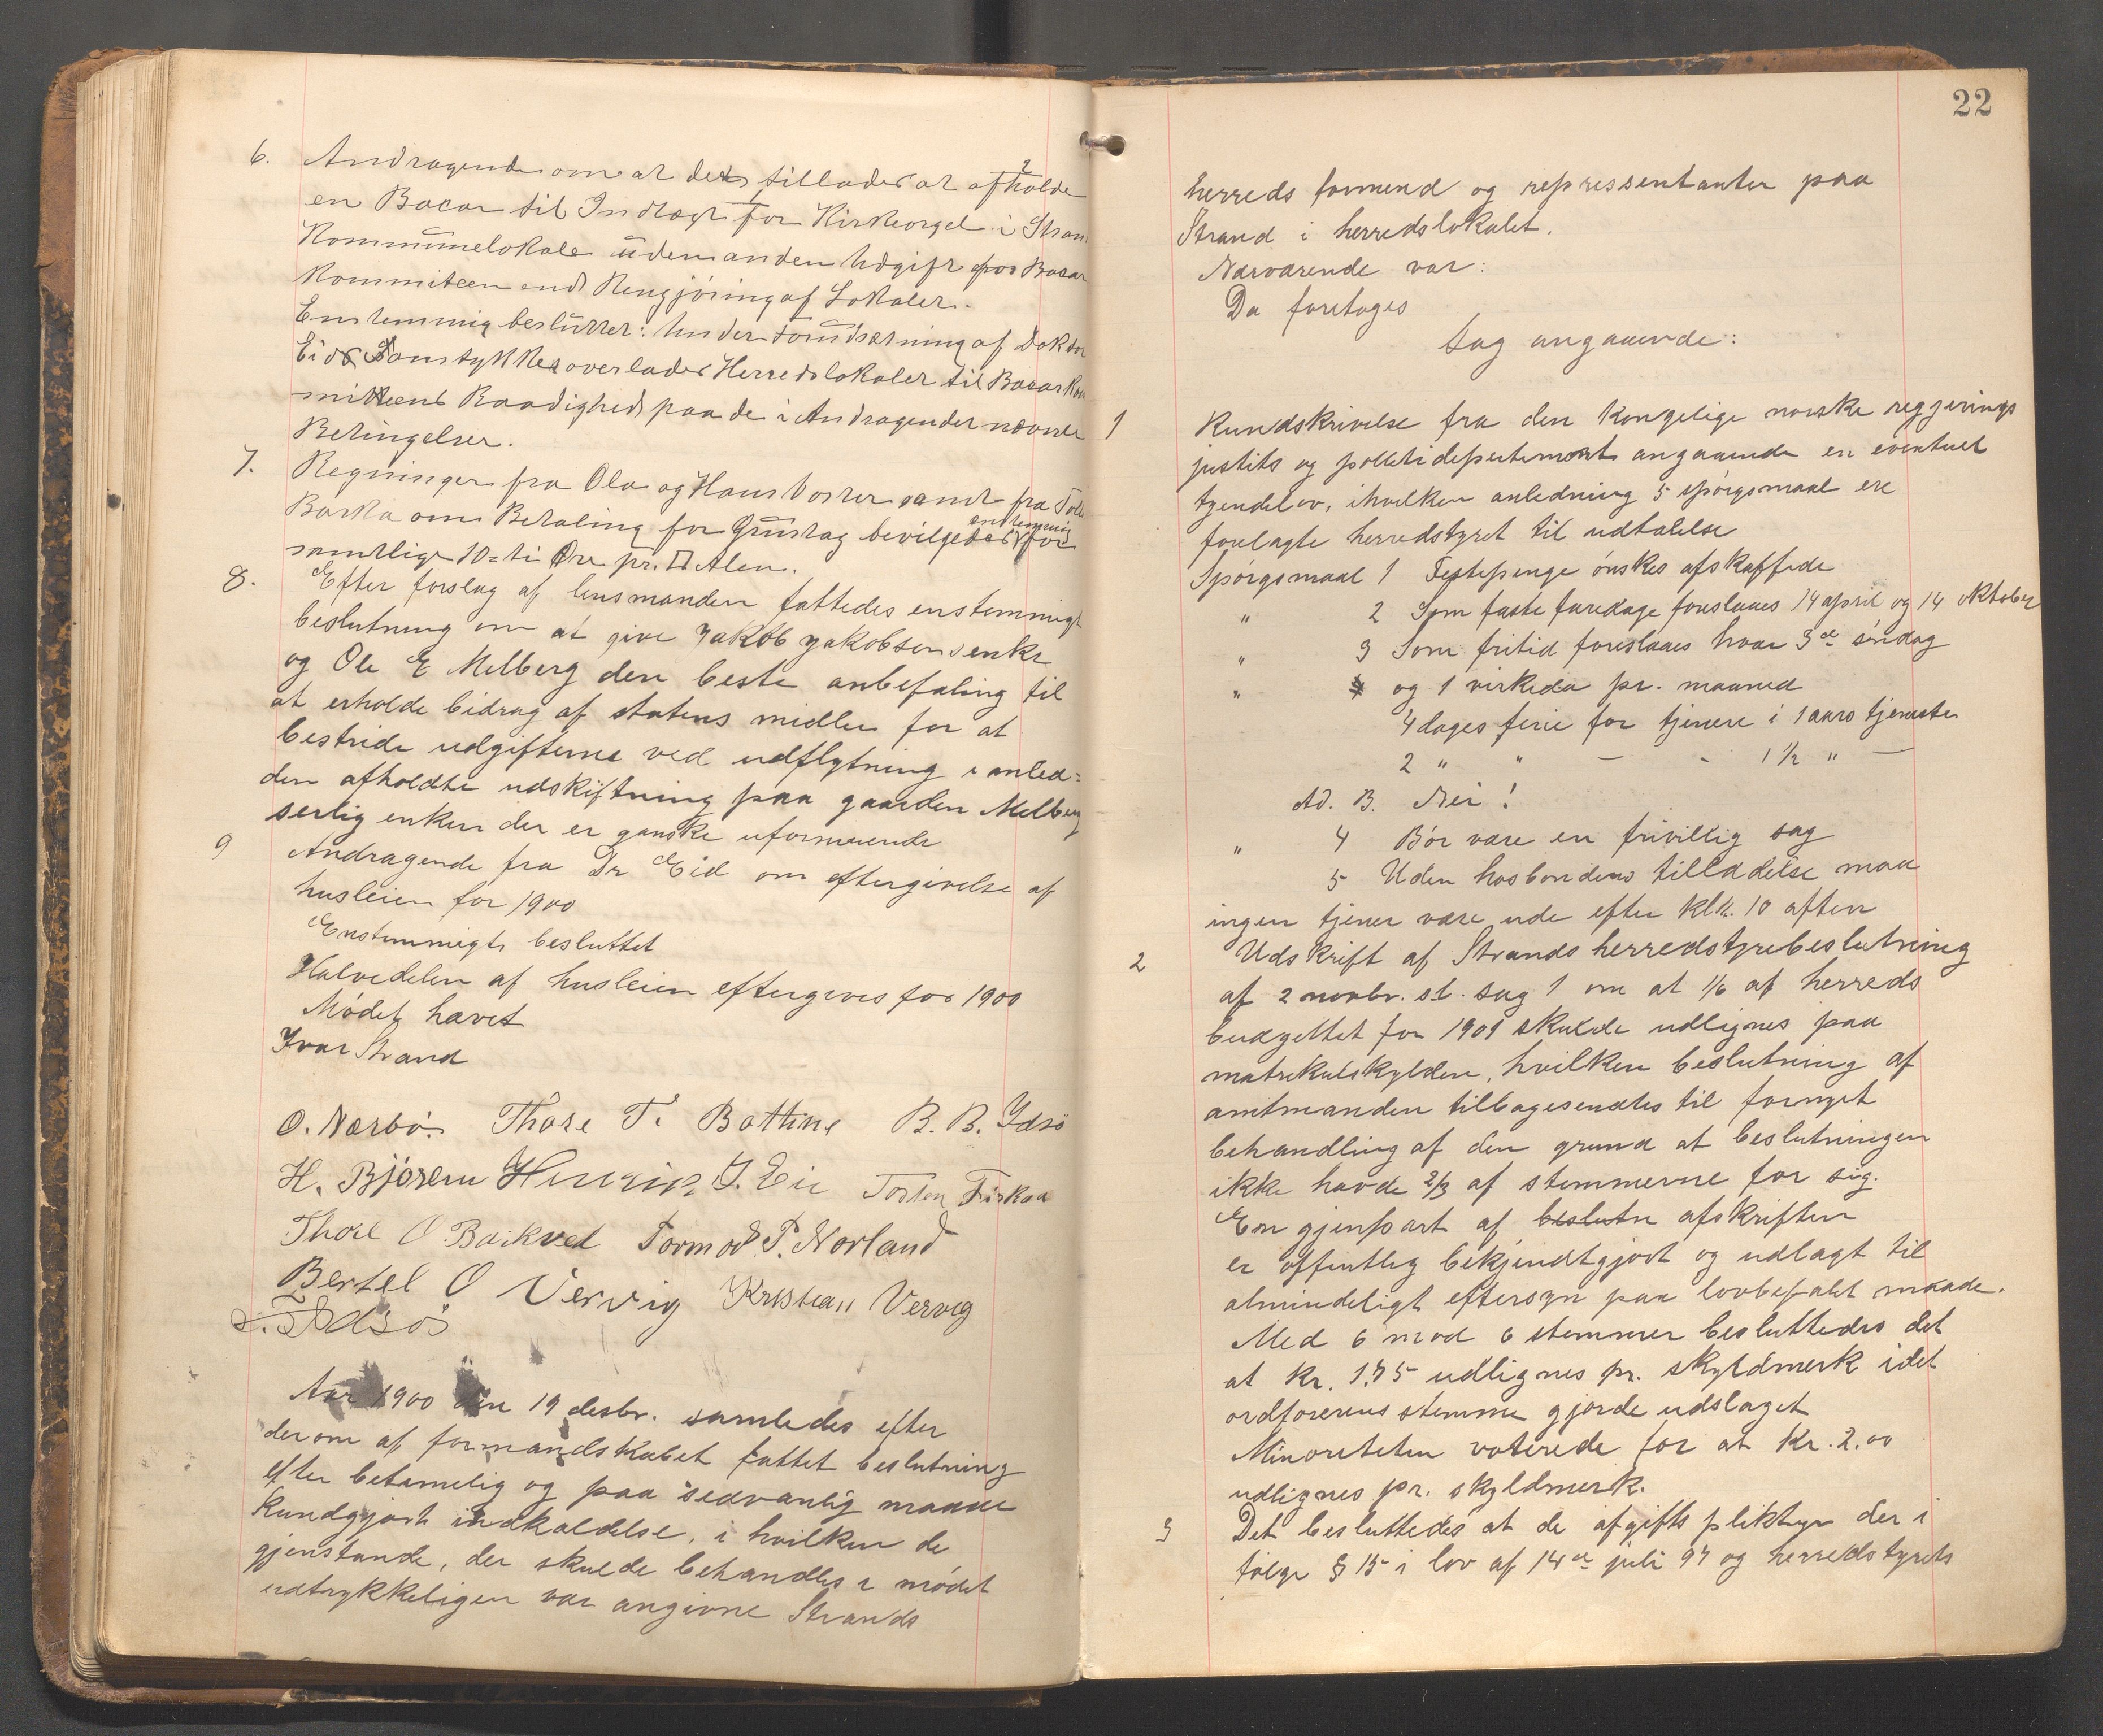 6. Andragende om at det tillades at afholde
en Bacar til Indtægt for Kirkeorgel i Stran
Kommunelokale uden anden Udgift for Bacar
Kommiteen end Rengjøring af Lokaler.
Enstemmig besluttet: Under Forudsætning af Doktor
Eids Samtykke overlades Herredslokaler til Bacarkom
miteens Raadighed paa de i Andragendet nævnte
Betingelser.
7. Regninger fra Ola og Hans Voster samt fra Tollei
Barka om Betaling for Grustag bevilgedes enstemmig for
samtlige 10 = ti Øre pr. □ Alen.
8. Efter forslag af lensmanden fattedes enstemmigt
beslutning om at give Jakob Jakobsens enke
og Ole E Melberg den beste anbefaling til
at erholde bidrag af statens midler for at
bestride udgifterne ved udflytning i anled=
den afholdte udskiftning paa gaarden Melberg
serlig enken der er ganske uformuende
9 Andragende fra Dr Eid om eftergivelse af
husleien for 1900
Enstemmigt besluttet
Halvedelen af husleien eftergives for 1900
Mødet hævet
Ivar Strand
O. Nærbø. Thore T. Bathne B. B. Idsø
H. Bjøren Henrik J. Eie Tosten Fiskaa
Thore O Barkved Tormod P. Norland
Bertel O Vervig Kristian Vervig
Idsøe
Aar 1900 den 19 desbr. samledes efter
derom af formandskabet fattet beslutning
efter betimelig og paa sedvanlig maade
kundgjort indkaldelse, i hvilken de
gjenstande, der skulde behandles i mødet
udtrykkeligen var angivne Strands
22
herreds formend og repressentanter paa
Strand i herredslokalet.
Nærværende var:
Da foretoges
Sag angaaende:
1 Rundskrivelse fra den kongelige norske regjerings
justits og politidepartement angaaende en eventuel
tyendelov, i hvilken anledning 5 spørgsmaal ere
forelagte herredstyret til udtalelse
Spørgsmaal 1 Festepenge ønskes afskaffede
" 2 Som faste faredage foreslaaes 14 april og 14 oktober
" 3 Som fritid foreslaaes hver 3de søndag
" og 1 virkeda pr. maaned
4 dages ferie for tjenere i 1 aars tjeneste
2 " " — " 1 1/2 " —
Ad. B. Nei!
" 4 Bør være en frivillig sag
5 Uden hosbondens tilladelse maa
ingen tjener være ude efter klk. 10 aften
2 Udskrift af Strands herredstyrebeslutning
af 2 novbr. sl. sag 1 om at 1/6 af herreds
budgettet for 1901 skulde udlignes paa
matrikulskylden, hvilken beslutning af
amtmanden tilbagesendtes til fornyet
behandling af den grund at beslutningen
ikke havde 2/3 af stemmerne for sig.
En gjenpart af beslutn afskriften
er offentlig bekjendtgjort og udlagt til
almindeligt eftersyn paa lovbefalet maade.
Med 6 mod 6 stemmer besluttedes det
at kr. 1.75 udlignes pr. skyldmerk idet
ordførerens stemme gjorde udslaget
Minoriteten voterede for at kr. 2.00
udlignes pr. skyldmerk.
3 Det besluttedes at de afgifts pliktige der i
følge § 15 i lov af 14de juli 97 og herredstyrets